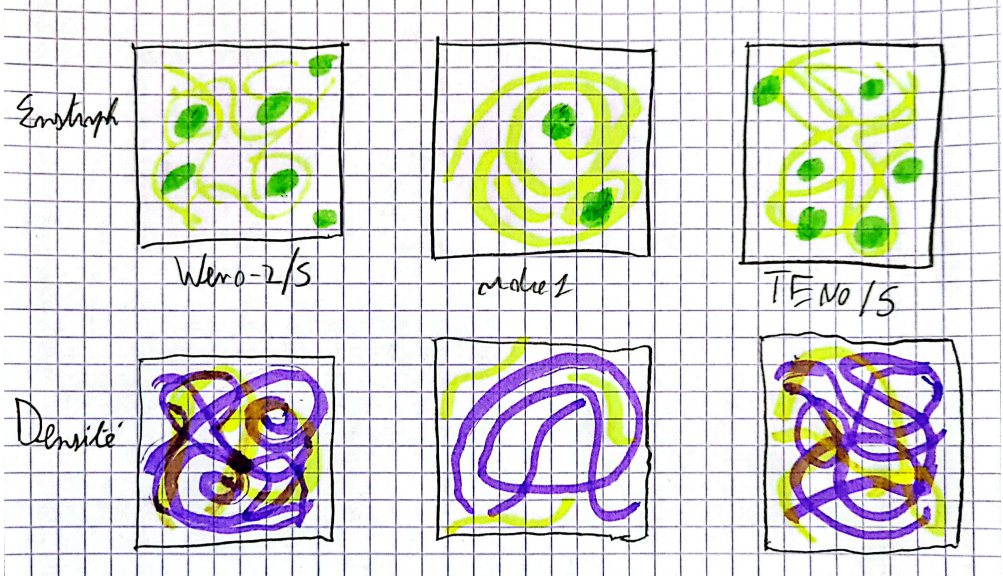 Enstroph
Weno-Z/5
TENO/5
Densité